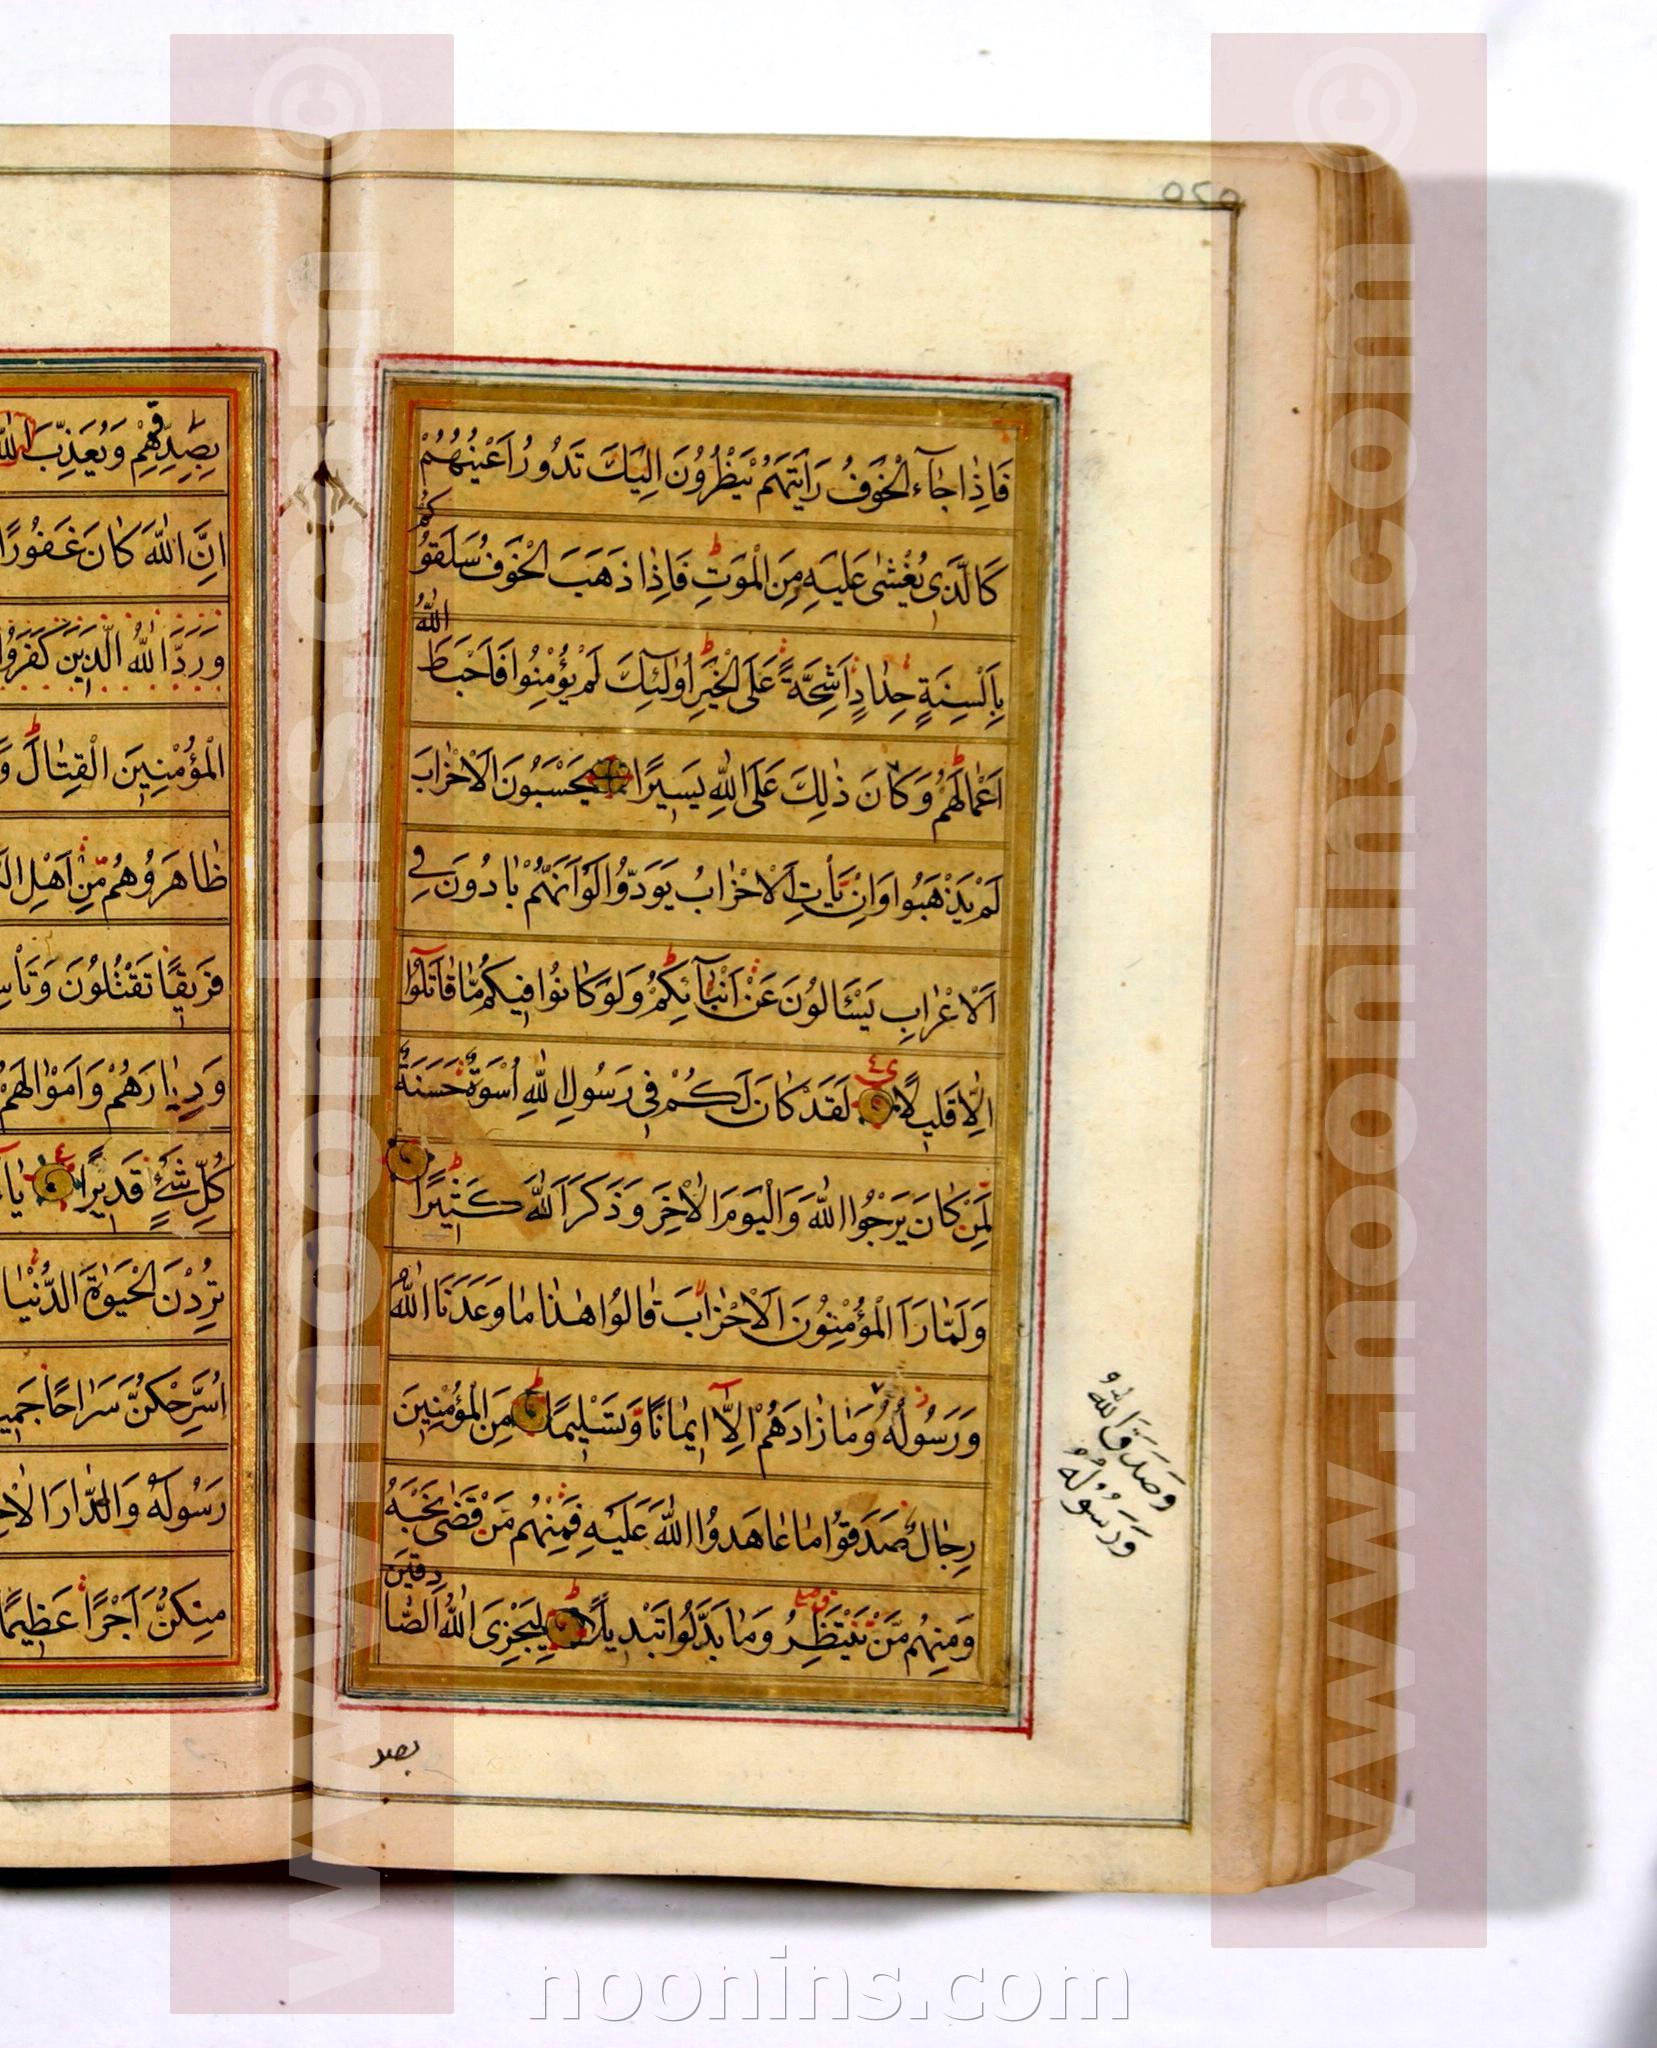 ٥٢٥
فَاِذَا جَآءَ الْخَوْفُ رَاَيْتَهُمْ يَنْظُرُوْنَ اِلَيْكَ تَدُوْرُ اَعْيُنُهُمْ
كَالَّذِى يُغْشٰى عَلَيْهِ مِنَ الْمَوْتِ فَاِذَا ذَهَبَ الْخَوْفُ سَلَقُوْكُمْ
بِاَلْسِنَةٍ حِدَادٍ اَشِحَّةً عَلَى الْخَيْرِ اُولٰئِكَ لَمْ يُؤْمِنُوا فَاَحْبَطَ اللّٰهُ
اَعْمَالَهُمْ وَكَانَ ذٰلِكَ عَلَى اللّٰهِ يَسِيْرًا يَحْسَبُوْنَ الْاَحْزَابَ
لَمْ يَذْهَبُوا وَاِنْ يَأْتِ الْاَحْزَابُ يَوَدُّوا لَوْ اَنَّهُمْ بَادُوْنَ فِى
الْاَعْرَابِ يَسْئَالُوْنَ عَنْ اَنْبَآئِكُمْ وَلَوْ كَانُوا فِيْكُمْ مَّا قَاتَلُوْا
اِلَّا قَلِيْلًا لَقَدْ كَانَ لَكُمْ فِى رَسُوْلِ اللّٰهِ اُسْوَةٌ حَسَنَةٌ
لِّمَنْ كَانَ يَرْجُوا اللّٰهَ وَالْيَوْمَ الْاٰخِرَ وَذَكَرَ اللّٰهَ كَثِيْرًا
وَلَمَّا رَاَ الْمُؤْمِنُوْنَ الْاَحْزَابَ قَالُوْا هٰذَا مَا وَعَدَنَا اللّٰهُ
وَرَسُوْلُهُ وَمَا زَادَهُمْ اِلَّا اِيْمَانًا وَّتَسْلِيْمًا مِنَ الْمُؤْمِنِيْنَ
رِجَالٌ صَدَقُوا مَا عَاهَدُوا اللّٰهَ عَلَيْهِ فَمِنْهُمْ مَنْ قَضٰى نَحْبَهُ
وَمِنْهُمْ مَّنْ يَنْتَظِرُ وَمَا بَدَّلُوا تَبْدِيْلًا لِيَجْزِىَ اللّٰهُ الصَّادِقِيْنَ
وَصَدَقَ اللّٰهُ
وَرَسُوْلُهُ
بصد
بِصِدْقِهِمْ وَيُعَذِّبَ
اِنَّ اللّٰهَ كَانَ غَفُوْرًا
وَرَدَّ اللّٰهُ الَّذِيْنَ كَفَرُوْا
الْمُؤْمِنِيْنَ الْقِتَالَ
ظَاهَرُوْهُمْ مِّنْ اَهْلِ
فَرِيْقًا تَقْتُلُوْنَ
وَدِيَارَهُمْ وَاَمْوَالَهُمْ
كُلِّ شَىْءٍ قَدِيْرًا
تُرِدْنَ الْحَيٰوةَ الدُّنْيَا
اُسَرِّحْكُنَّ سَرَاحًا
رَسُوْلَهُ وَالدَّارَ
مِنْكُنَّ اَجْرًا عَظِيْمًا
www.noonins.com ©
www.noonins.com ©
noonins.com